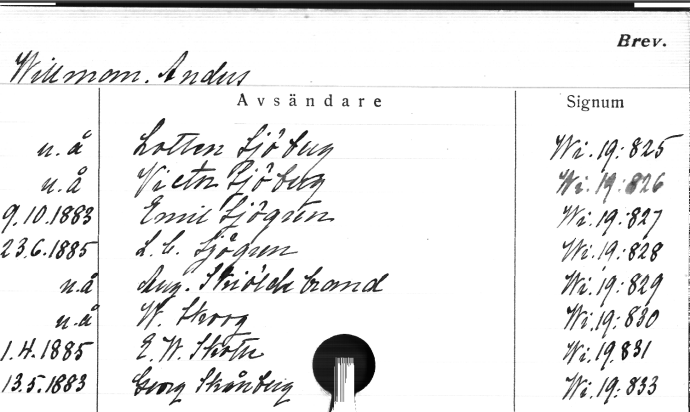 Brev.
Willmann. Anders
Avsändare Signum
u.å Lotten Sjöberg Wi. 19:825
u.å Victor Sjöberg Wi. 19:826
9.10.1883 Emil Sjögren Wi. 19:827
23.6.1885 L.C. Sjögren Wi. 19:828
u.å Aug. Skiöldebrand Wi. 19:829
u.å W. Skoog Wi. 19:830
1.4.1885 E.W. Skote Wi. 19.831
13.5.1883 Georg Skånberg Wi. 19:833